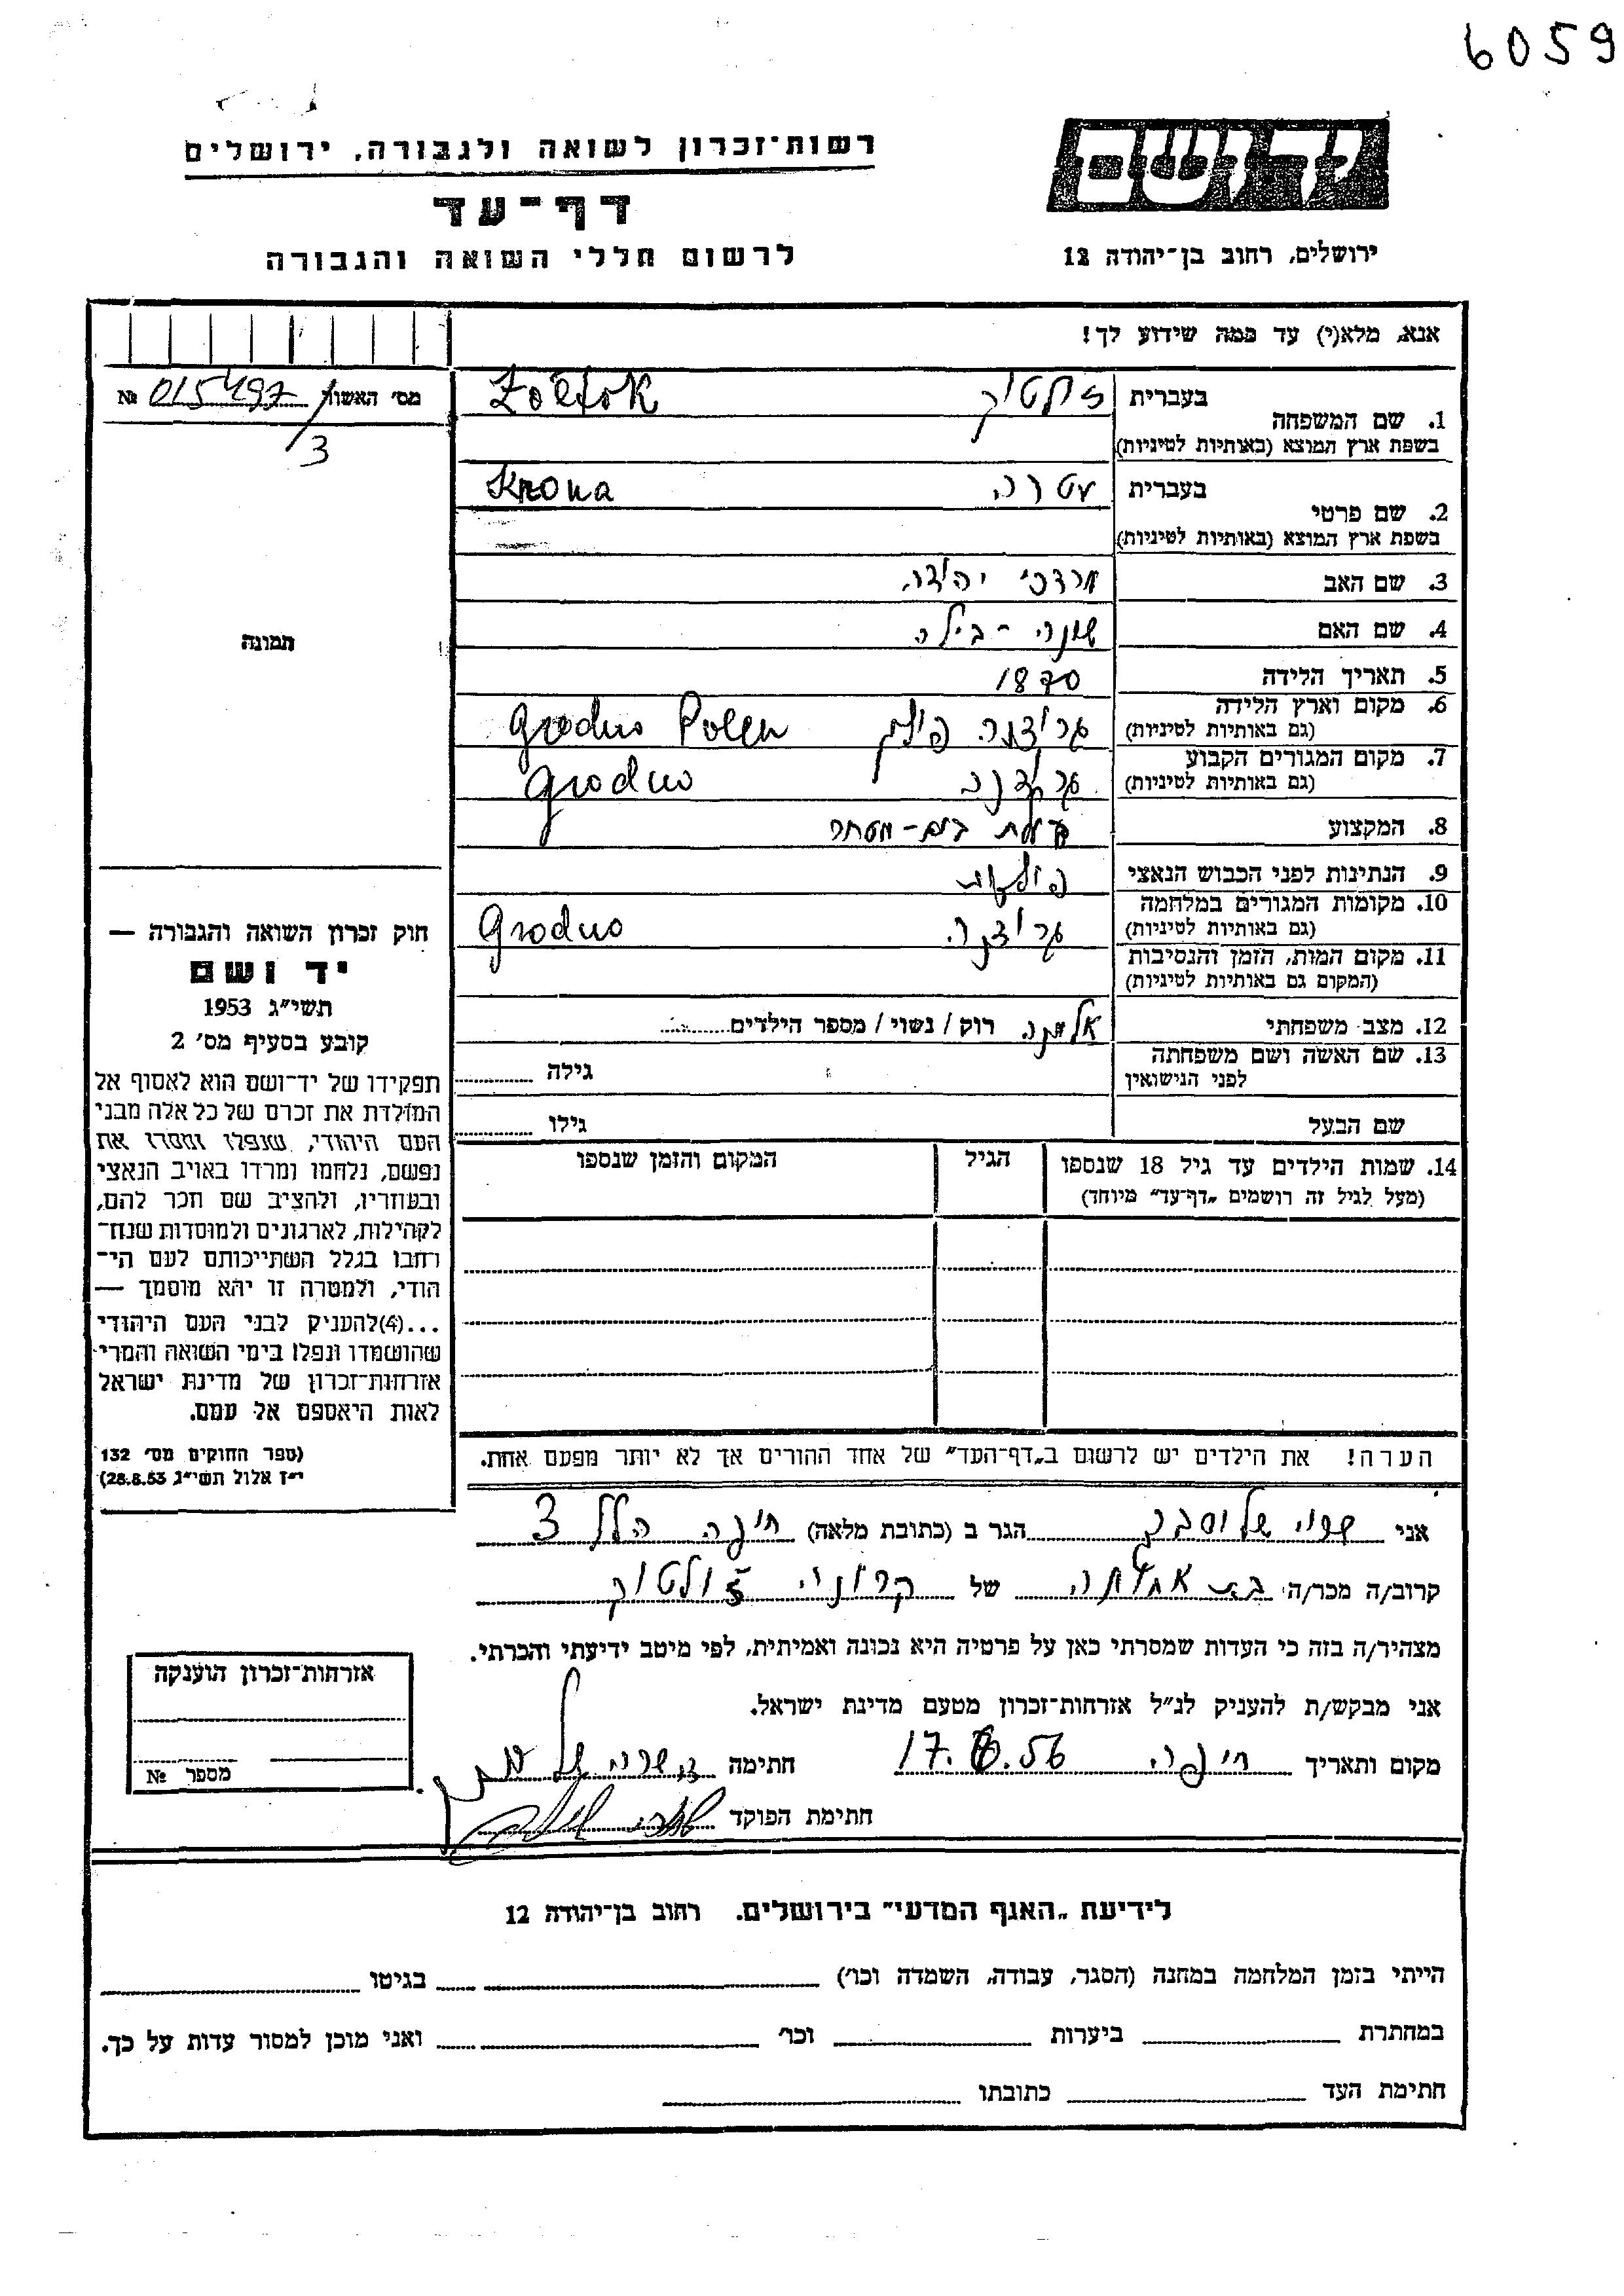 6059
רשות־זכרון לשואה ולגבורה, ירושלים
יד ושם
דף־עד
לרשום חללי השואה והגבורה
ירושלים, רחוב בן־יהודה 12
אנא, מלא(י) עד כמה שידוע לך!
מס׳ האשור № 015497/3
1. שם המשפחה
בעברית
Zołtok
בשפת ארץ המוצא (באותיות לטיניות)
2. שם פרטי
בעברית עטרה
Krona
בשפת ארץ המוצא (באותיות לטיניות)
3. שם האב מרדכי יהודה
4. שם האם שונה - ביילה
5. תאריך הלידה 1870
6. מקום וארץ הלידה גרודנה פולין Grodno Polen
(גם באותיות לטיניות)
7. מקום המגורים הקבוע גרודנה Grodno
(גם באותיות לטיניות)
8. המקצוע בעלת בית-מסחר
9. הנתינות לפני הכבוש הנאצי פולנית
10. מקומות המגורים במלחמה גרודנה Grodno
(גם באותיות לטיניות)
11. מקום המות, הזמן והנסיבות
(המקום גם באותיות לטיניות)
12. מצב משפחתי אלמנה רוק / נשוי / מספר הילדים
13. שם האשה ושם משפחתה גילה
לפני הנישואין
שם הבעל גילו
14. שמות הילדים עד גיל 18 שנספו הגיל המקום והזמן שנספו
(מעל לגיל זה רושמים „דף־עד״ מיוחד)
הערה! את הילדים יש לרשום ב„דף־העד״ של אחד ההורים אך לא יותר מפעם אחת.
תמונה
חוק זכרון השואה והגבורה —
יד ושם
תשי״ג 1953
קובע בסעיף מס׳ 2
תפקידו של יד־ושם הוא לאסוף אל
המולדת את זכרם של כל אלה מבני
העם היהודי, שנפלו ומסרו את
נפשם, נלחמו ומרדו באויב הנאצי
ובעוזריו, ולהציב שם וזכר להם,
לקהילות, לארגונים ולמוסדות שנח־
רבו בגלל השתייכותם לעם הי־
הודי, ולמטרה זו יהא מוסמך —
...(4)להעניק לבני העם היהודי
שהושמדו ונפלו בימי השואה והמרי
אזרחות־זכרון של מדינת ישראל
לאות היאספם אל עמם.
(ספר החוקים מס׳ 132
י״ז אלול תשי״ג 28.8.53)
אני הגר ב (כתובת מלאה) חיפה הלל 3
קרוב/ה מכר/ה בת אחותה של קרונה זולטוק
מצהיר/ה בזה כי העדות שמסרתי כאן על פרטיה היא נכונה ואמיתית, לפי מיטב ידיעתי והכרתי.
אני מבקש/ת להעניק לנ״ל אזרחות־זכרון מטעם מדינת ישראל.
מקום ותאריך חיפה 17.6.56 חתימה
חתימת הפוקד
אזרחות־זכרון הוענקה
מספר №
לידיעת „האגף המדעי״ בירושלים. רחוב בן־יהודה 12
הייתי בזמן המלחמה במחנה (הסגר, עבודה, השמדה וכו׳) בגיטו
במחתרת ביערות וכו׳ ואני מוכן למסור עדות על כך.
חתימת העד כתובתו